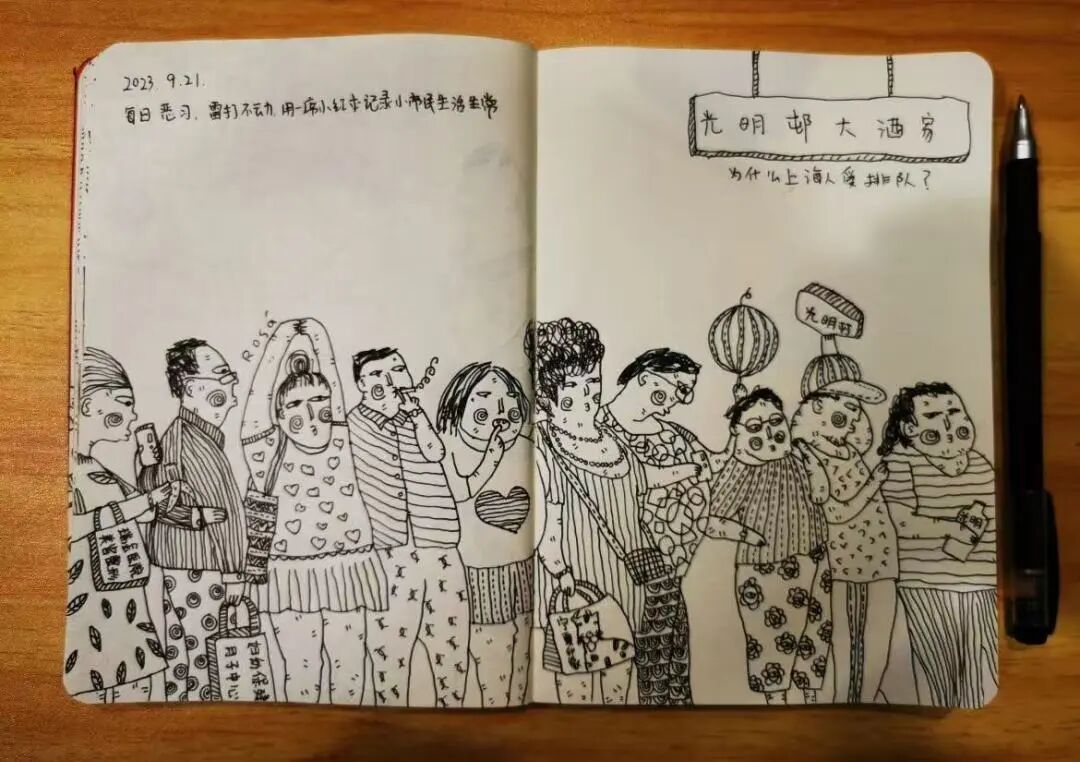 2023. 9.21.
每日恶习，雷打不动，用一席小红本记录小市民生活日常
光明邨大酒家
为什么上海人爱排队？
Rosa
光明邨
光明
妇幼保健
月子中心